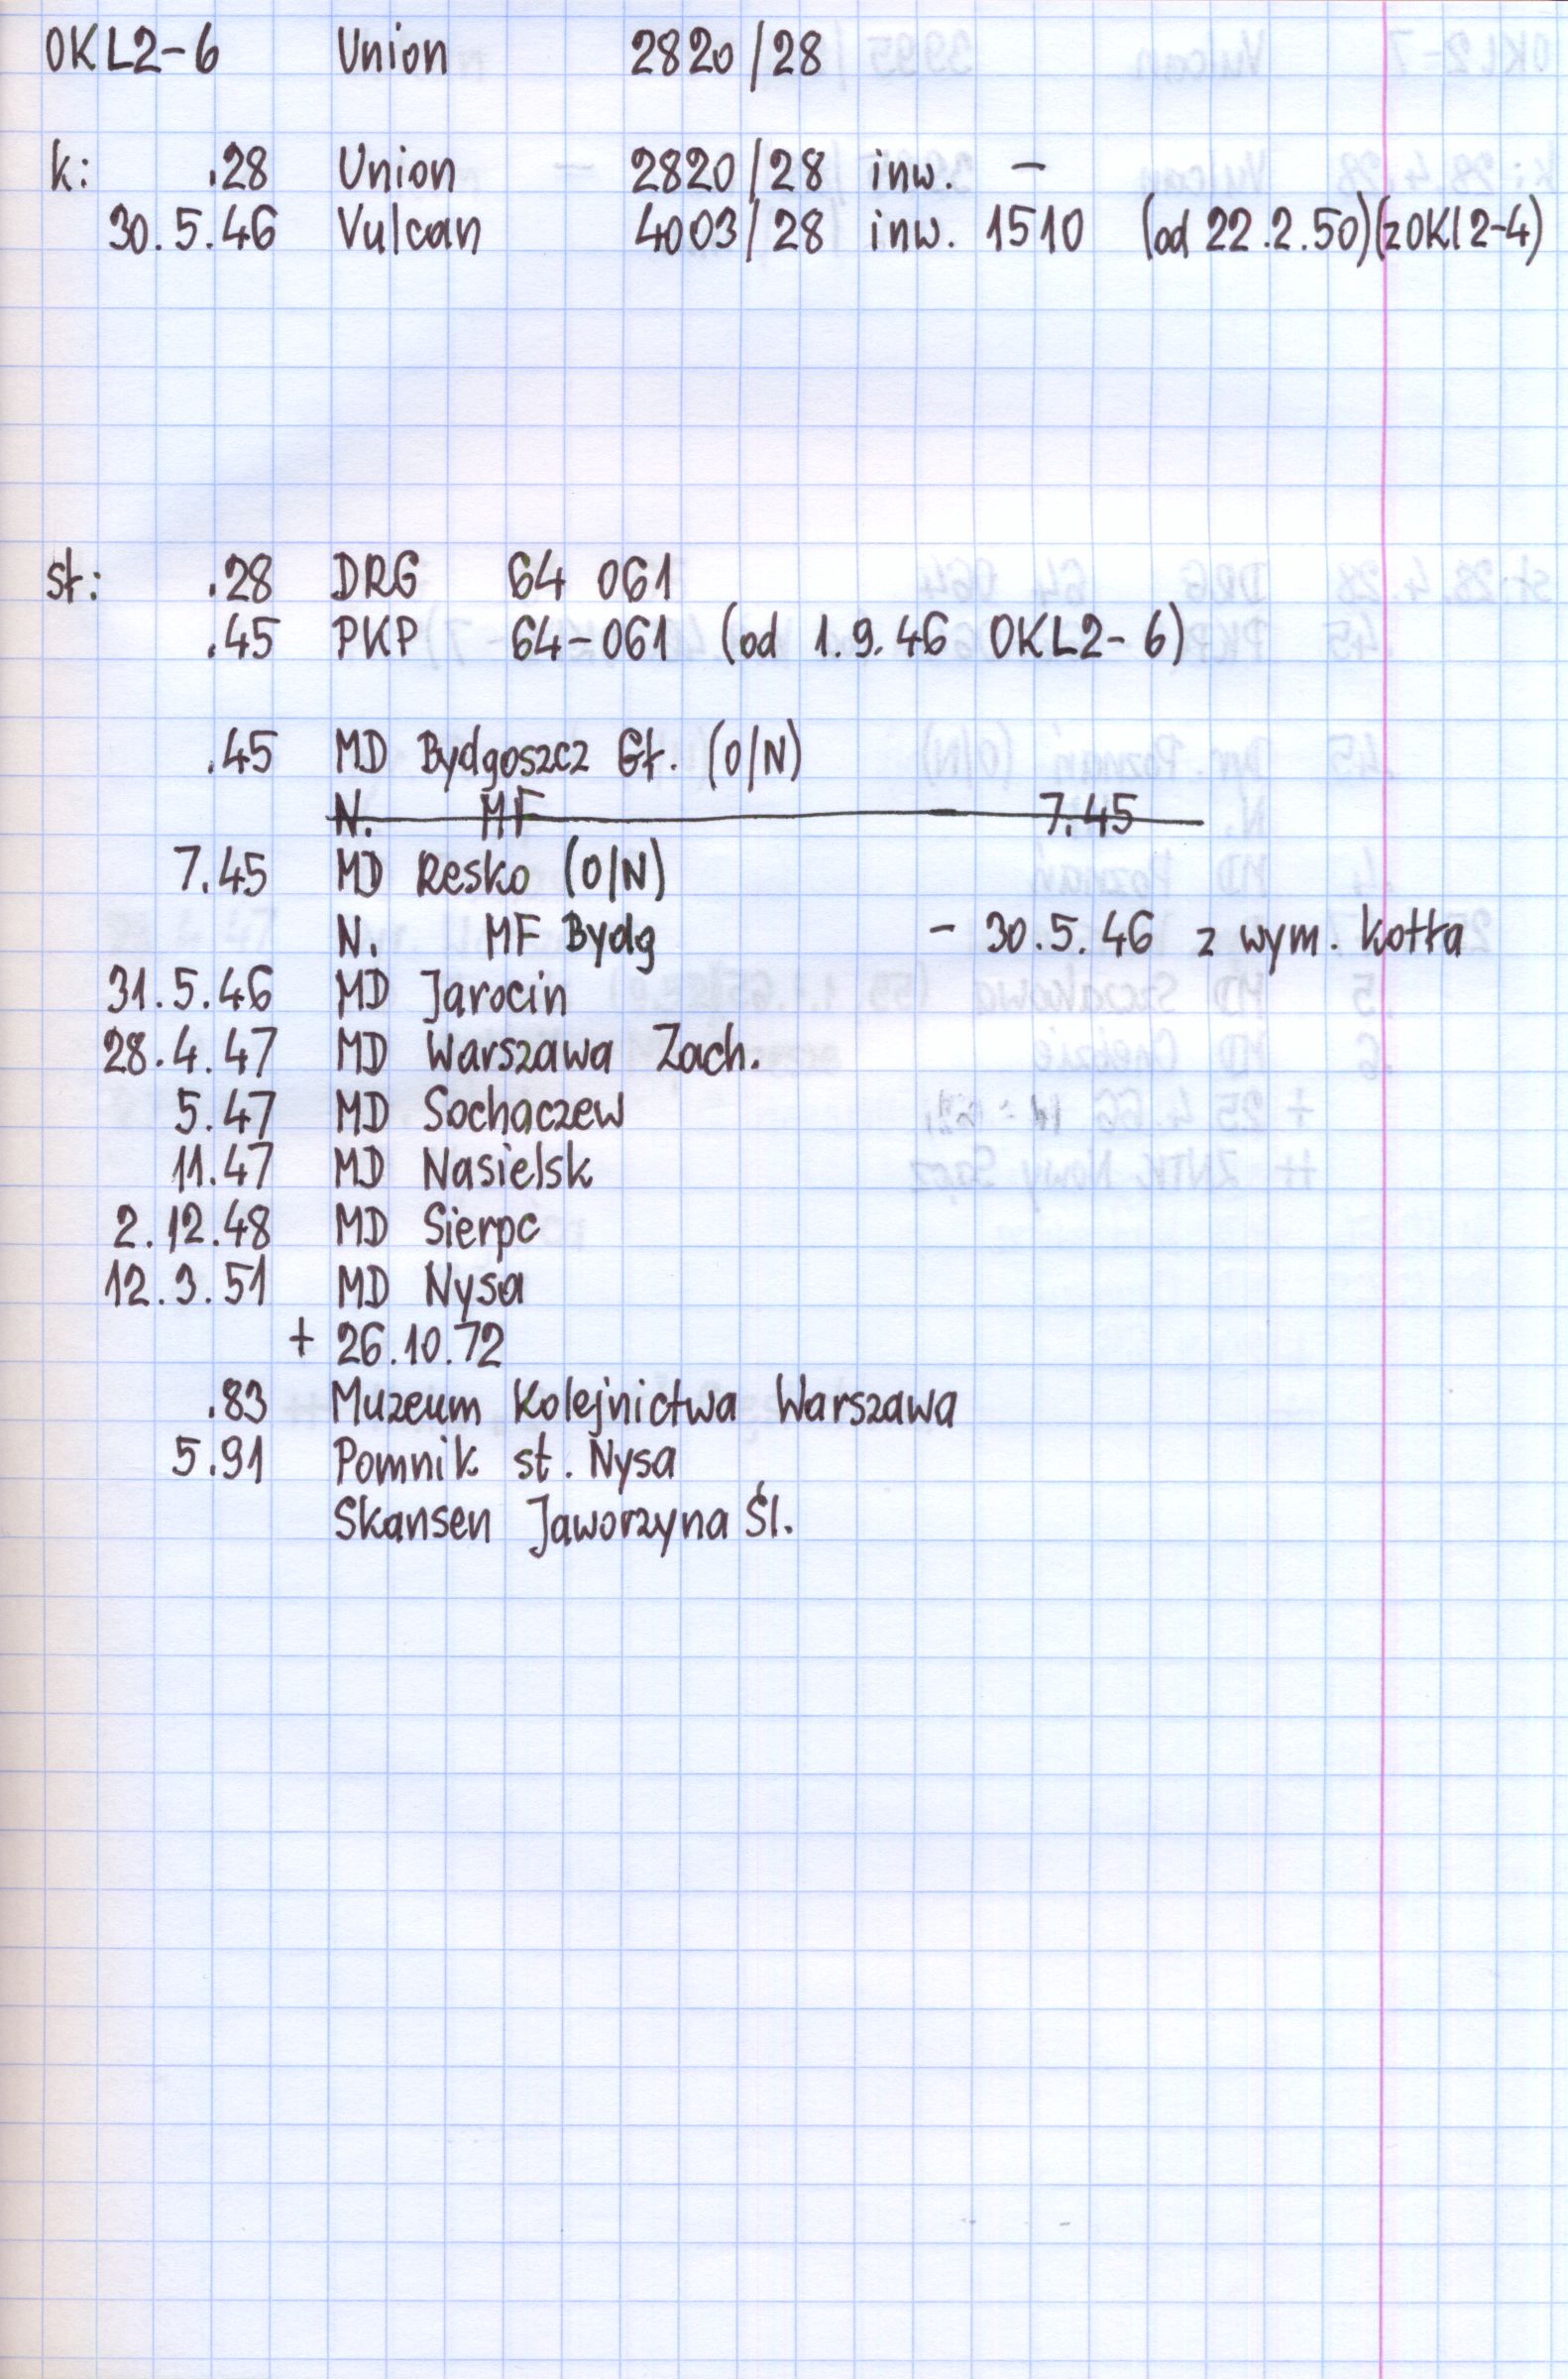 OKL2-6 Union 2820/28
k: .28 Union 2820/28 inw. -
30.5.46 Vulcan 4003/28 inw. 1510 (od 22.2.50)(z OKl2-4)
sł: .28 DRG 64 061
.45 PKP 64-061 (od 1.9.46 OKL2-6)
.45 MD Bydgoszcz Gł. (O/N)
N. MF - 7.45
7.45 MD Resko (O/N)
N. MF Bydg - 30.5.46 z wym. kotła
31.5.46 MD Jarocin
28.4.47 MD Warszawa Zach.
5.47 MD Sochaczew
11.47 MD Nasielsk
2.12.48 MD Sierpc
12.3.51 MD Nysa
+ 26.10.72
.83 Muzeum Kolejnictwa Warszawa
5.91 Pomnik st. Nysa
Skansen Jaworzyna Śl.